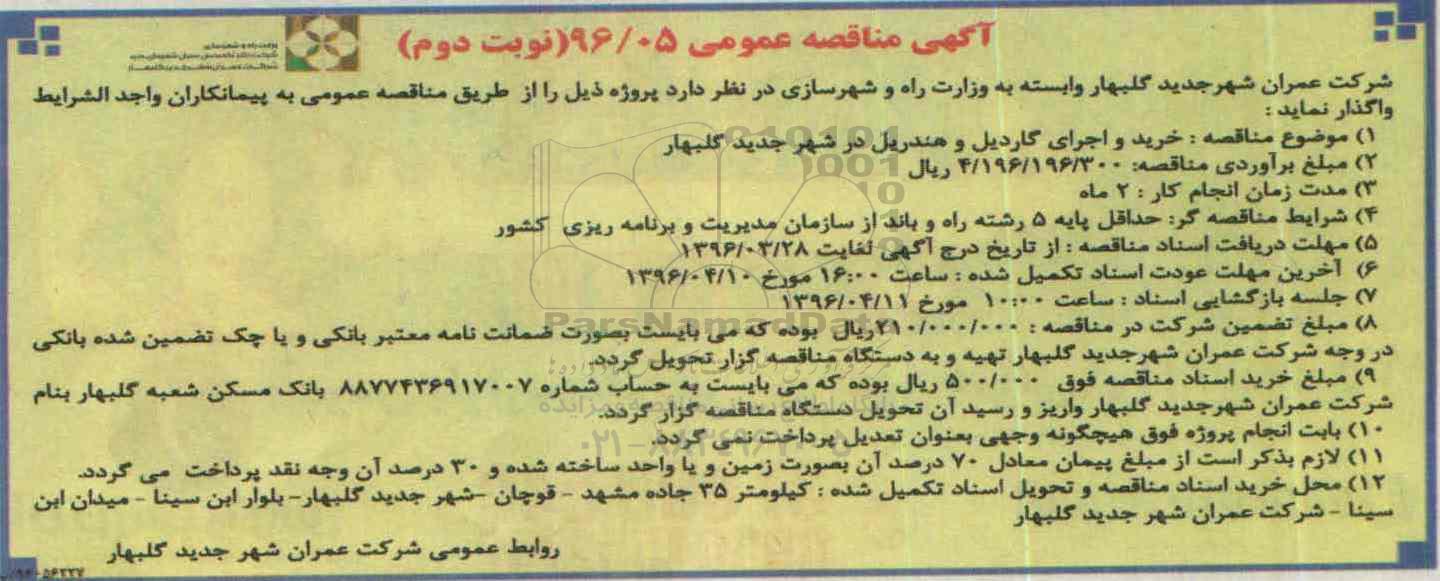 آگهی مناقصه عمومی ۹۶/۰۵(نوبت دوم)
شرکت عمران شهرجدید گلبهار وابسته به وزارت راه و شهرسازی در نظر دارد پروژه ذیل را از طریق مناقصه عمومی به پیمانکاران واجد الشرایط
واگذار نماید :
۱) موضوع مناقصه : خرید و اجرای گاردیل و هندریل در شهر جدید گلبهار
۲) مبلغ برآوردی مناقصه: ۴/۱۹۶/۱۹۶/۳۰۰ ریال
۳) مدت زمان انجام کار : ۲ ماه
۴) شرایط مناقصه گر: حداقل پایه ۵ رشته راه و باند از سازمان مدیریت و برنامه ریزی کشور
۵) مهلت دریافت اسناد مناقصه : از تاریخ درج آگهی لغایت ۱۳۹۶/۰۳/۲۸
۶) آخرین مهلت عودت اسناد تکمیل شده : ساعت ۱۶:۰۰ مورخ ۱۳۹۶/۰۴/۱۰
۷) جلسه بازگشایی اسناد : ساعت ۱۰:۰۰ مورخ ۱۳۹۶/۰۴/۱۱
ParsNamadData
۸) مبلغ تضمین شرکت در مناقصه : ۲۱۰/۰۰۰/۰۰۰ریال بوده که می بایست بصورت ضمانت نامه معتبر بانکی و یا چک تضمین شده بانکی
در وجه شرکت عمران شهرجدید گلبهار تهیه و به دستگاه مناقصه گزار تحویل گردد.
۹) مبلغ خرید اسناد مناقصه فوق ۵۰۰/۰۰۰ ریال بوده که می بایست به حساب شماره ۸۸۷۷۴۳۶۹۱۷۰۰۷ بانک مسکن شعبه گلبهار بنام
شرکت عمران شهرجدید گلبهار واریز و رسید آن تحویل دستگاه مناقصه گزار گردد.
۱۰) بابت انجام پروژه فوق هیچگونه وجهی بعنوان تعدیل پرداخت نمی گردد.
۱۱) لازم بذکر است از مبلغ پیمان معادل ۷۰ درصد آن بصورت زمین و یا واحد ساخته شده و ۳۰ درصد آن وجه نقد پرداخت می گردد.
۱۲) محل خرید اسناد مناقصه و تحویل اسناد تکمیل شده : کیلومتر ۳۵ جاده مشهد - قوچان -شهر جدید گلبهار- بلوار ابن سینا - میدان ابن
سینا - شرکت عمران شهر جدید گلبهار
روابط عمومی شرکت عمران شهر جدید گلبهار